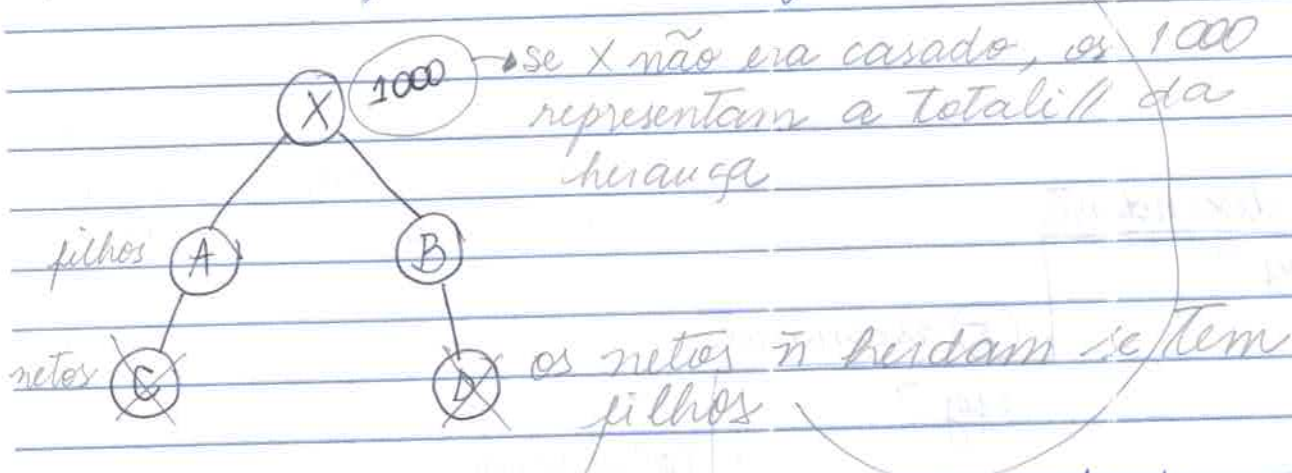 X 1000 se X não era casado, os 1000
representam a totali// da
herança
filhos A B
netos C D os netos ñ herdam se tem
filhos